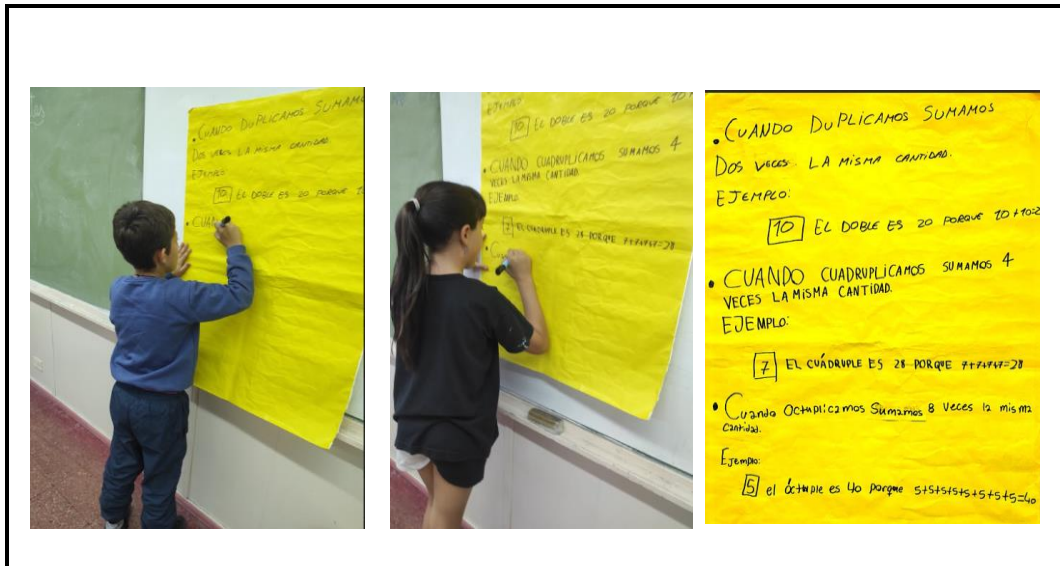 • CUANDO DUPLICAMOS SUMAMO
DOS VECES LA MISMA CANTIDAD.
EJEMPLO
10 EL DOBLE ES 20 PORQUE 10
• CUAN
EJEMPLO
10 EL DOBLE ES 20 PORQUE 10
• CUANDO CUADRUPLICAMOS SUMAMOS 4
VECES LA MISMA CANTIDAD.
EJEMPLO.
7 EL CUÁDRUPLE ES 28 PORQUE 7+7+7+7=28
• Cu
• CUANDO DUPLICAMOS SUMAMOS
DOS VECES LA MISMA CANTIDAD.
EJEMPLO:
10 EL DOBLE ES 20 PORQUE 10+10=2
• CUANDO CUADRUPLICAMOS SUMAMOS 4
VECES LA MISMA CANTIDAD.
EJEMPLO:
7 EL CUÁDRUPLE ES 28 PORQUE 7+7+7+7=28
• Cuando Octuplicamos Sumamos 8 Veces la misma
cantidad.
Ejemplo:
5 el óctuple es 40 porque 5+5+5+5+5+5+5+5=40